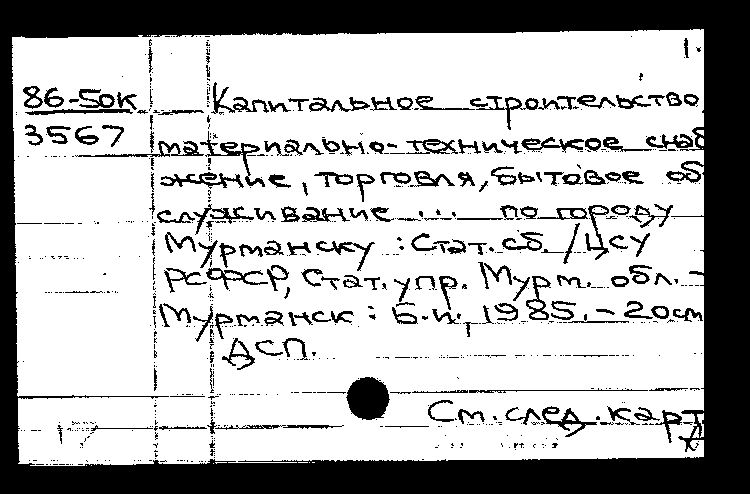 1.
86-50к Капитальное строительство,
3567 материально-техническое снаб
жение, торговля, бытовое об
служивание ... по городу
Мурманску : Стат. сб. / ЦСУ
РСФСР, Стат. упр. Мурм. обл. –
Мурманск : Б.и., 1985. – 20 см
ДСП.
См. след. карт
17